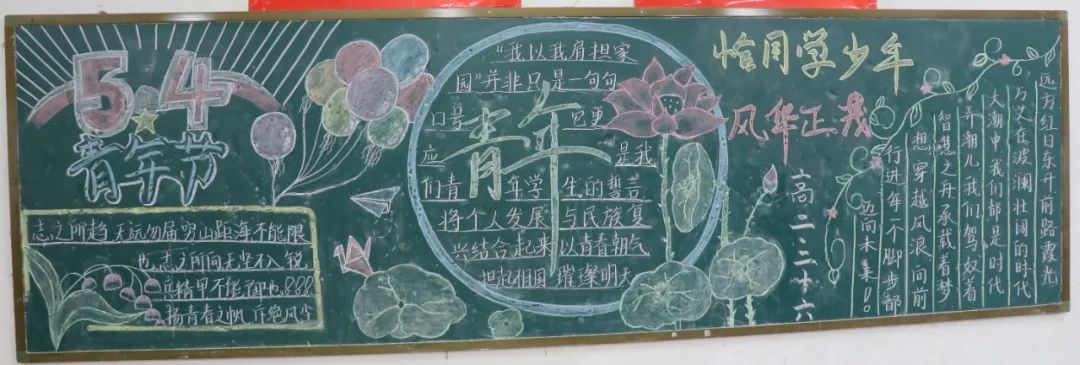 54
青年节
志之所趋 无远勿届 穷山距海 不能限
也,志之所向 无坚不入 锐
兵精甲 不能御也!!!
扬青春之帆 绝风尘
“我以我肩担家
园”并非只是一句句
口号 它更
青年
应 是我
们青年学生的誓言
将个人发展与民族复
兴结合起来 以青春朝气
担起祖国璀璨明天
恰同学少年
风华正茂
高二二十六
远方红日东升前路霞光
万丈在波澜壮阔的时代
大潮中我们都是时代
弄潮儿我们驾奴着
智慧之舟承载着梦
想穿越风浪向前
行进每个脚步都
迈向未来!!